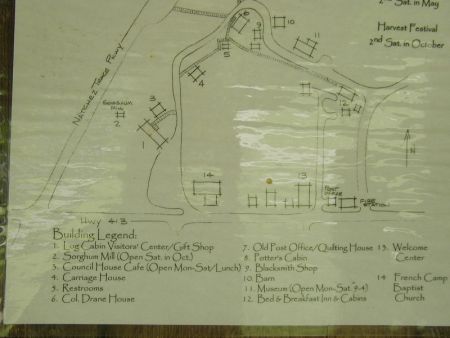 2nd Sat. in May
Harvest Festival
2nd Sat. in October
Natchez Trace Pkwy
Sorghum Mill
2
3
1
4
5
6
9
10
11
12
14
13
Post Office
Fire Station
N
Hwy 413
Building Legend:
1. Log Cabin Visitors' Center/Gift Shop
2. Sorghum Mill (Open Sat. in Oct.)
3. Council House Cafe (Open Mon-Sat/Lunch)
4. Carriage House
5. Restrooms
6. Col. Drane House
7. Old Post Office/Quilting House
8. Potter's Cabin
9. Blacksmith Shop
10. Barn
11. Museum (Open Mon-Sat. 9-4)
12. Bed & Breakfast Inn & Cabins
13. Welcome
Center
14 French Camp
Baptist
Church